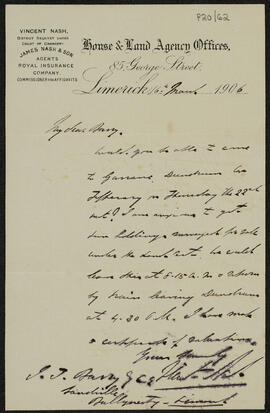 P20/62
VINCENT NASH,
DISTRICT REGISTRY UNDER
COURT OF CHANCERY.
JAMES NASH & SON
AGENTS
ROYAL INSURANCE
COMPANY.
COMMISSIONER FOR AFFIDAVITS
House & Land Agency Offices,
85 George Street,
Limerick 16 March 1906
My dear Barry,
Would you be able to come
to Garrane, Dundrum Co
Tipperary on Thursday the 22nd
inst? I am anxious to get
two holdings surveyed for sale
under the Land Act. We could
leave this at 8.15 a.m. & return
by train leaving Dundrum
at 4.30 P.M. I have made
a certificate of valuation
Yours
J. J. Barry Esq C.E.
Sandville
Ballyneety Limerick